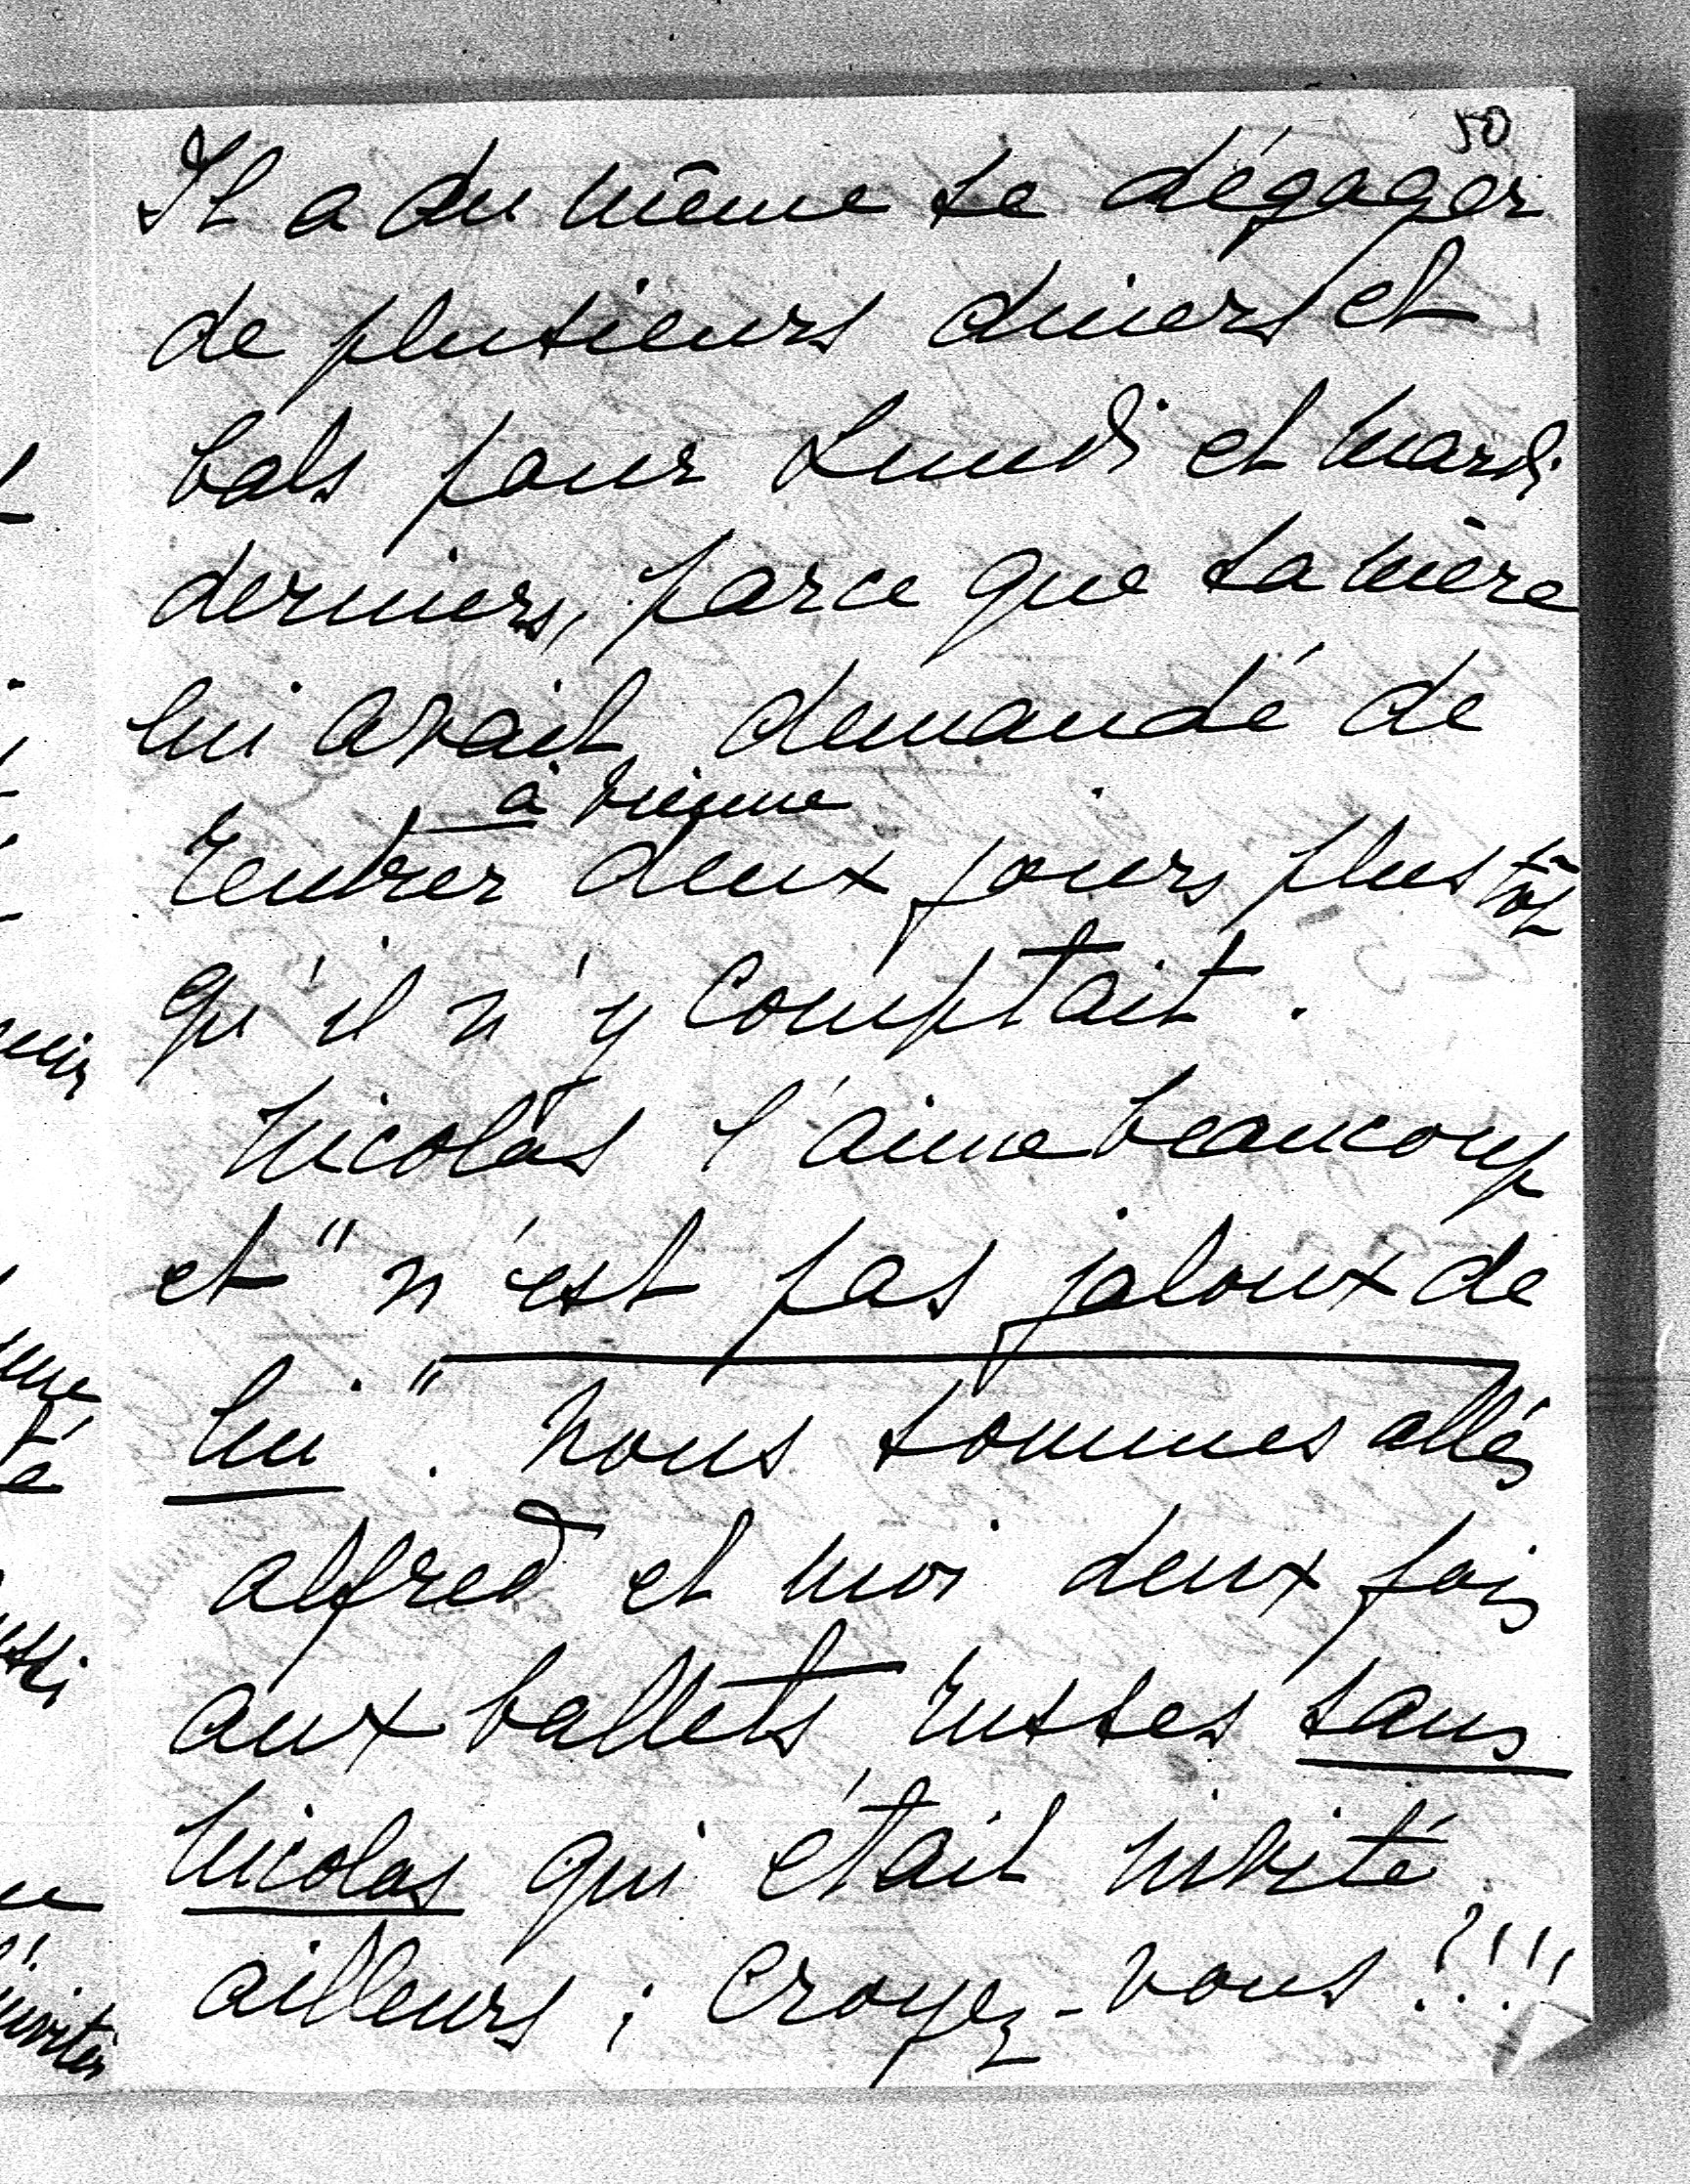 50
Il a du même se dégager
de plusieurs diners et
bals pour Lundi et mardi
derniers, parce que sa mère
lui avait demandé de
à Vienne
rentrer deux jours plus tôt
qu'il n'y comptait.
Nicolas l'aime beaucoup
et "n'est pas jaloux de
lui". Nous sommes allés
Alfred et moi deux fois
aux ballets russes sans
Nicolas qui était invité
ailleurs; Croyez-vous?!!!